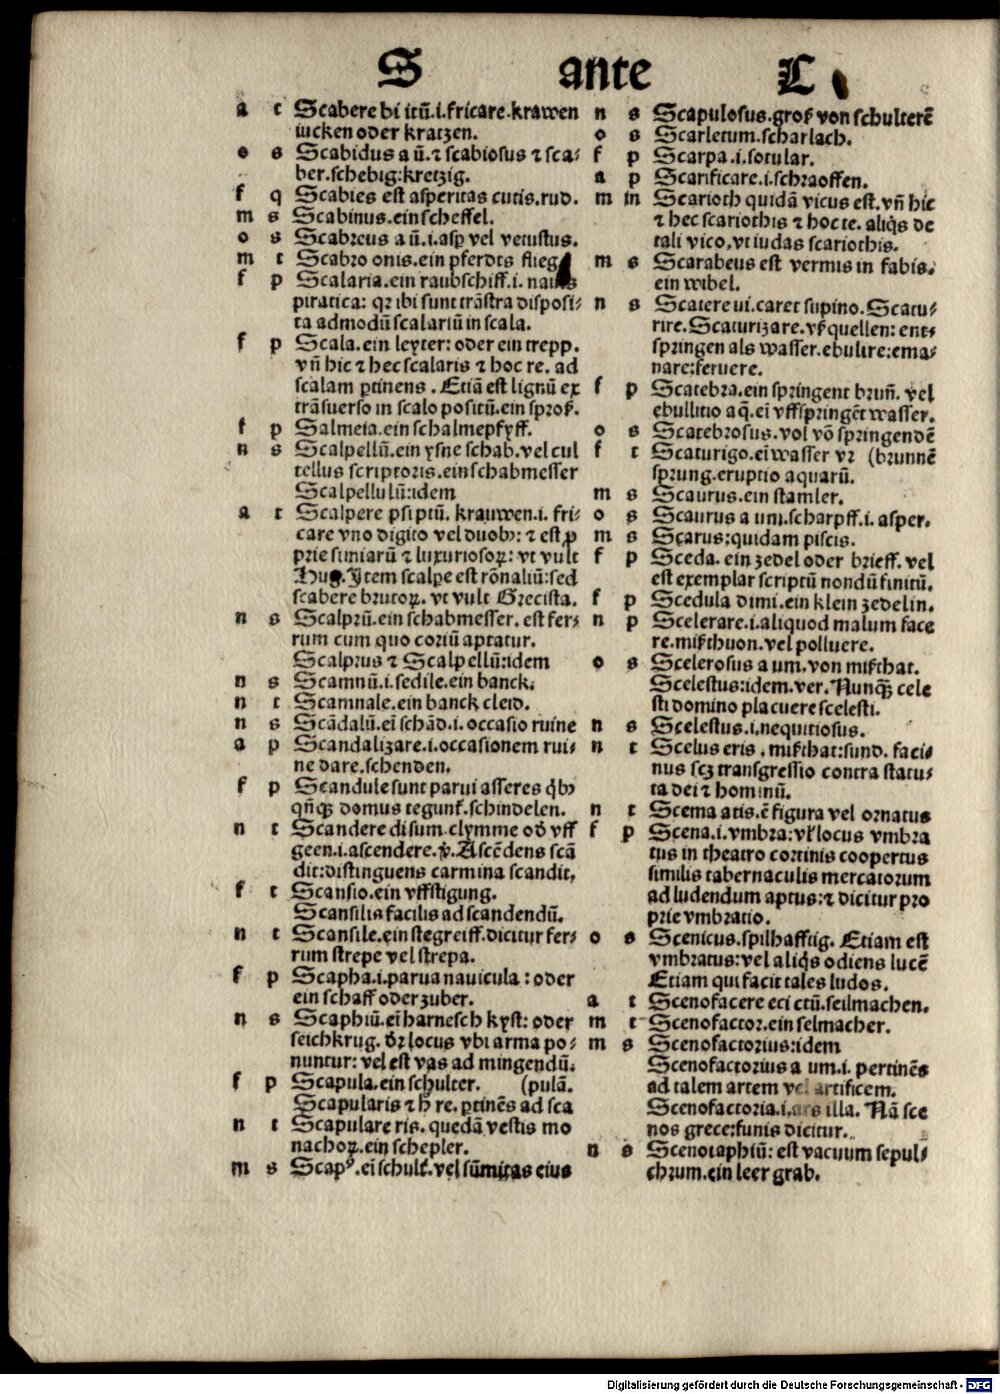 S ante C
a t Scabere bi itū.i.fricare.krawen
iucken oder kratzen.
o s Scabidus a ū.⁊ scabiosus ⁊ sca⸗
ber.schebig:kretzig.
f q Scabies est asperitas cutis.rud.
m s Scabinus.ein scheffel.
o s Scabreus a ū.i.asp vel vetustus.
m t Scabro onis.ein pferdts flieg
f p Scalaria.ein raubschiff.i.nauis
piratica: qꝛ ibi sunt trāstra disposi⸗
ta admodū scalariū in scala.
f p Scala.ein leyter: oder ein trepp.
vn̄ hic ⁊ hec scalaris ⁊ hoc re. ad
scalam ꝑtinens. Etiā est lignū ex
trāsuerso in scalo positū.ein sproß.
f p Salmeia.ein schalmepfyff.
n s Scalpellū.ein ysne schab.vel cul
tellus scriptoris.ein schabmesser
Scalpellulū:idem
a t Scalpere psi ptū. krauwen.i. fri⸗
care vno digito vel duobꝰ: ⁊ est ꝓ
prie simiarū ⁊ luxuriosoꝝ: vt vult
Hug. Item scalpe est rōnaliū:sed
scabere brutoꝝ. vt vult Grecista.
n s Scalprū.ein schabmesser. est fer⸗
rum cum quo coriū aptatur.
Scalprus ⁊ Scalpellū:idem
n s Scamnū.i.sedile.ein banck.
n t Scamnale.ein banck cleid.
n s Scādalū.eī schād.i. occasio ruine
a p Scandalizare.i.occasionem rui⸗
ne dare.schenden.
f p Scandule sunt parui asseres q̇bꝰ
qn̄qꝫ domus tegunt̄.schindelen.
n t Scandere di sum.clymme oď vff
geen.i.ascendere.ꝟ. Ascēdens scā
dit:distinguens carmina scandit,
f t Scansio.ein vffstigung.
Scansilis facilis ad scandendū.
n t Scansile.ein stegreiff.dicitur fer⸗
rum strepe vel strepa.
f p Scapha.i.parua nauicula: oder
ein schaff oder zuber.
n s Scaphiū.eī harnesch kyst: oder
seichkrug. dr̄ locus vbi arma po⸗
nuntur: vel est vas ad mingendū.
f p Scapula.ein schulter. (pulā.
Scapularis ⁊ ħ re. ꝑtinēs ad sca
n t Scapulare ris. quedā vestis mo
nachoꝝ.ein schepler.
m s Scapꝰ.eī schult̄.vel sūmitas eius
n s Scapulosus.groß von schulterē
o s Scarletum.scharlach.
f p Scarpa.i.sotular.
a p Scarificare.i.schraoffen.
m in Scarioth quidā vicus est.vn̄ hic
⁊ hec scariothis ⁊ hoc te. aliq̇s de
tali vico,vt iudas scariothis.
m s Scarabeus est vermis in fabis.
ein wibel.
n s Scatere ui.caret supino.Scatu⸗
rire.Scaturizare.vß quellen: ent⸗
springen als wasser.ebulire:ema⸗
nare:feruere.
f p Scatebra.ein springent brun̄. vel
ebullitio aq̄.eī vffspringēt wasser.
o s Scatebrosus.vol vō springendē
f t Scaturigo.eī wasser vr (brunnē
sprung.eruptio aquarū.
m s Scaurus.ein stamler.
o s Scaurus a um.scharpff.i. asper.
m s Scarus:quidam piscis.
f p Sceda. ein zedel oder brieff. vel
est exemplar scriptū nondū finitū.
f p Scedula dimi.ein klein zedelin.
n p Scelerare.i.aliquod malum face
re.mißthuon.vel polluere.
o s Scelerosus a um.von mißthat.
Scelestus:idem.ver. Nunqꝫ cele
sti domino placuere scelesti.
n s Scelestus.i.nequitiosus.
n t Scelus eris. mißthat:sund. faci⸗
nus scꝫ transgressio contra statu⸗
ta dei ⁊ hominū.
n t Scema atis.ē figura vel ornatus
f p Scena.i.vmbra:vł locus vmbra
tus in theatro cortinis coopertus
similis tabernaculis mercatorum
ad ludendum aptus:⁊ dicitur pro
prie vmbratio.
o s Scenicus.spilhafftig. Etiam est
vmbratus:vel aliq̇s odiens lucē
Etiam qui facit tales ludos.
a t Scenofacere eci ctū.seilmachen.
m t Scenofactor.ein selmacher.
m s Scenofactorius:idem
Scenofactorius a um.i. pertinēs
ad talem artem vel artificem.
Scenofactoria.i.ars illa. Nā sce
nos grece:funis dicitur.
n s Scenotaphiū: est vacuum sepul⸗
chrum.ein leer grab.
Digitalisierung gefördert durch die Deutsche Forschungsgemeinschaft - DFG